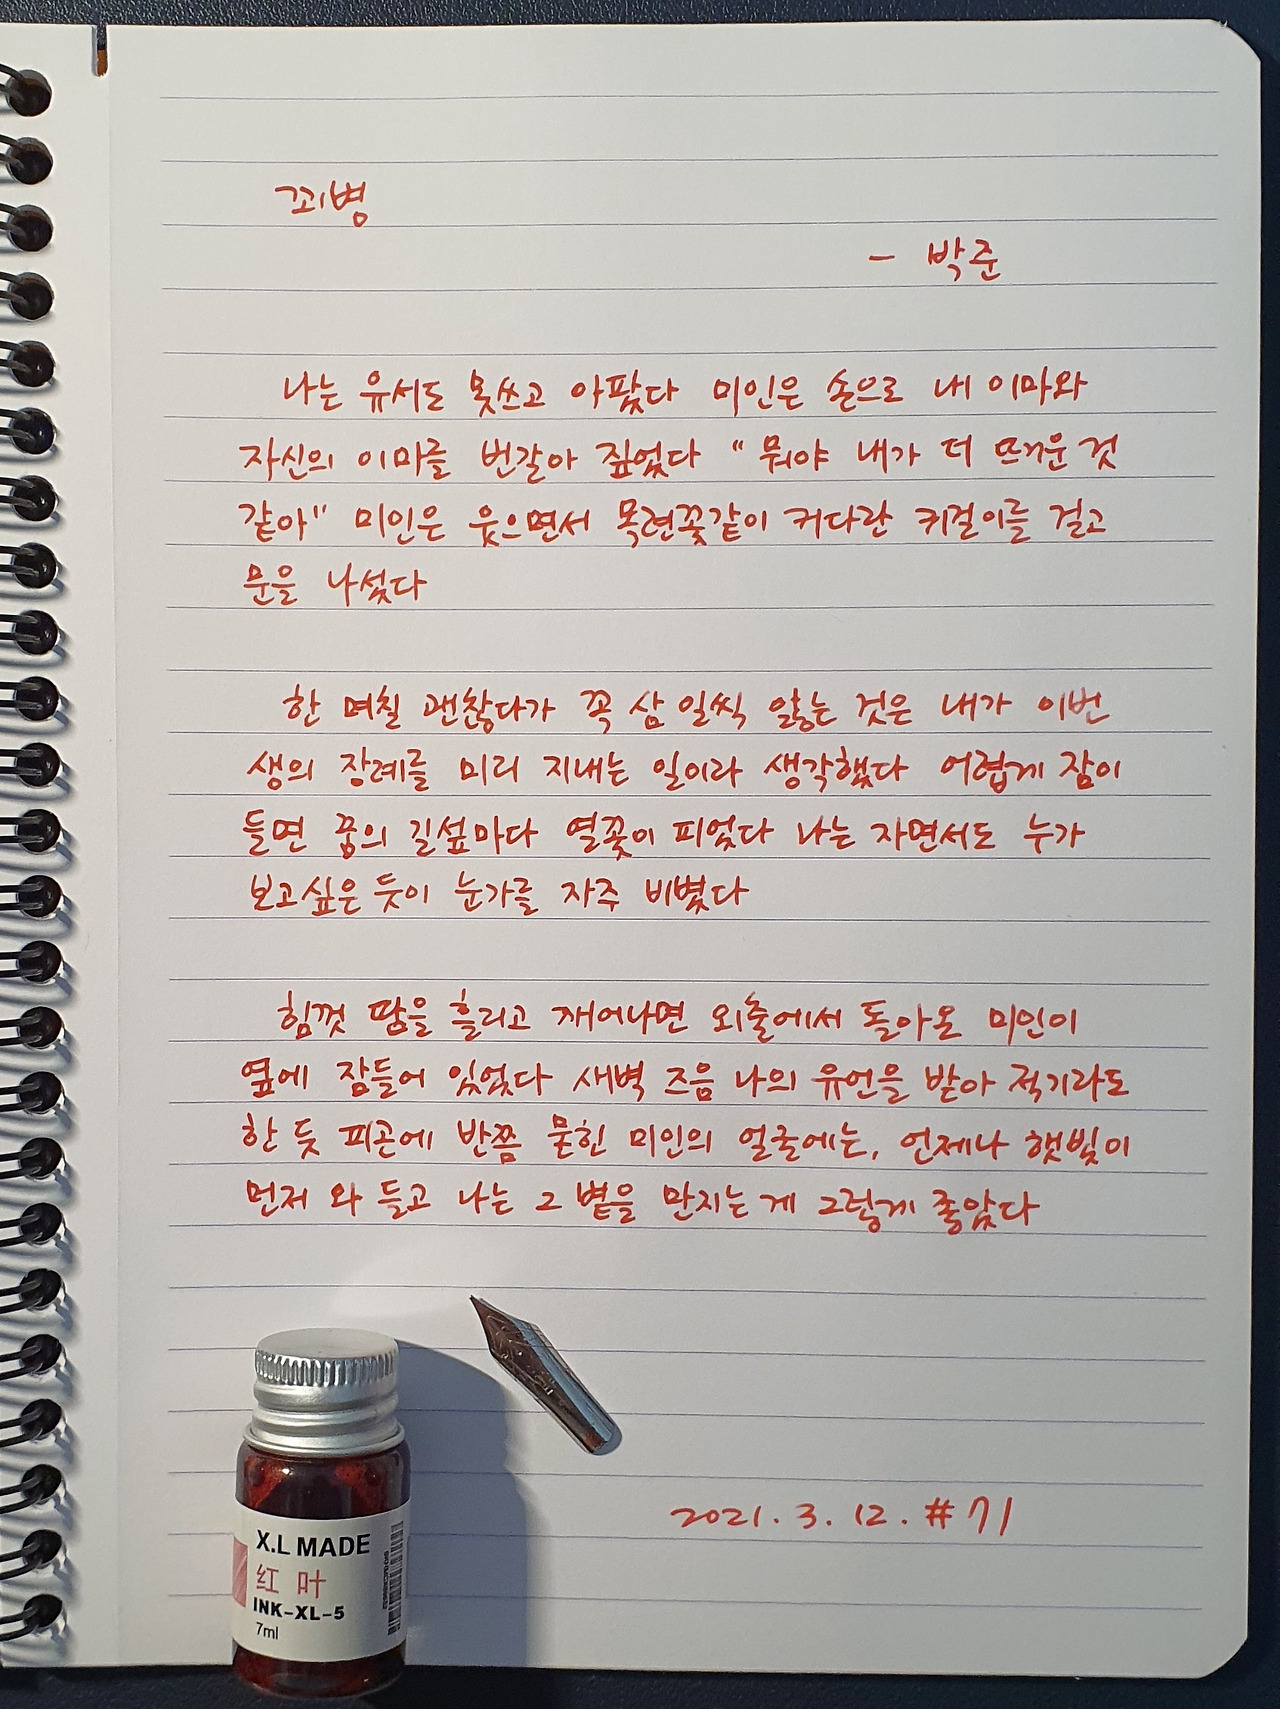 꾀병
- 박준
나는 유서도 못쓰고 아팠다 미인은 손으로 내 이마와
자신의 이마를 번갈아 짚었다 "뭐야 내가 더 뜨거운 것
같아" 미인은 웃으면서 목련꽃같이 커다란 귀걸이를 걸고
문을 나섰다
한 며칠 괜찮다가 꼭 삼 일씩 앓는 것은 내가 이번
생의 장례를 미리 지내는 일이라 생각했다 어렵게 잠이
들면 꿈의 길섶마다 열꽃이 피었다 나는 자면서도 누가
보고싶은 듯이 눈가를 자주 비볐다
힘껏 땀을 흘리고 깨어나면 외출에서 돌아온 미인이
옆에 잠들어 있었다 새벽 즈음 나의 유언을 받아 적기라도
한 듯 피곤에 반쯤 묻힌 미인의 얼굴에는, 언제나 햇빛이
먼저 와 들고 나는 그 볕을 만지는 게 그렇게 좋았다
2021. 3. 12. #71
X.L MADE
红 叶
INK-XL-5
7ml